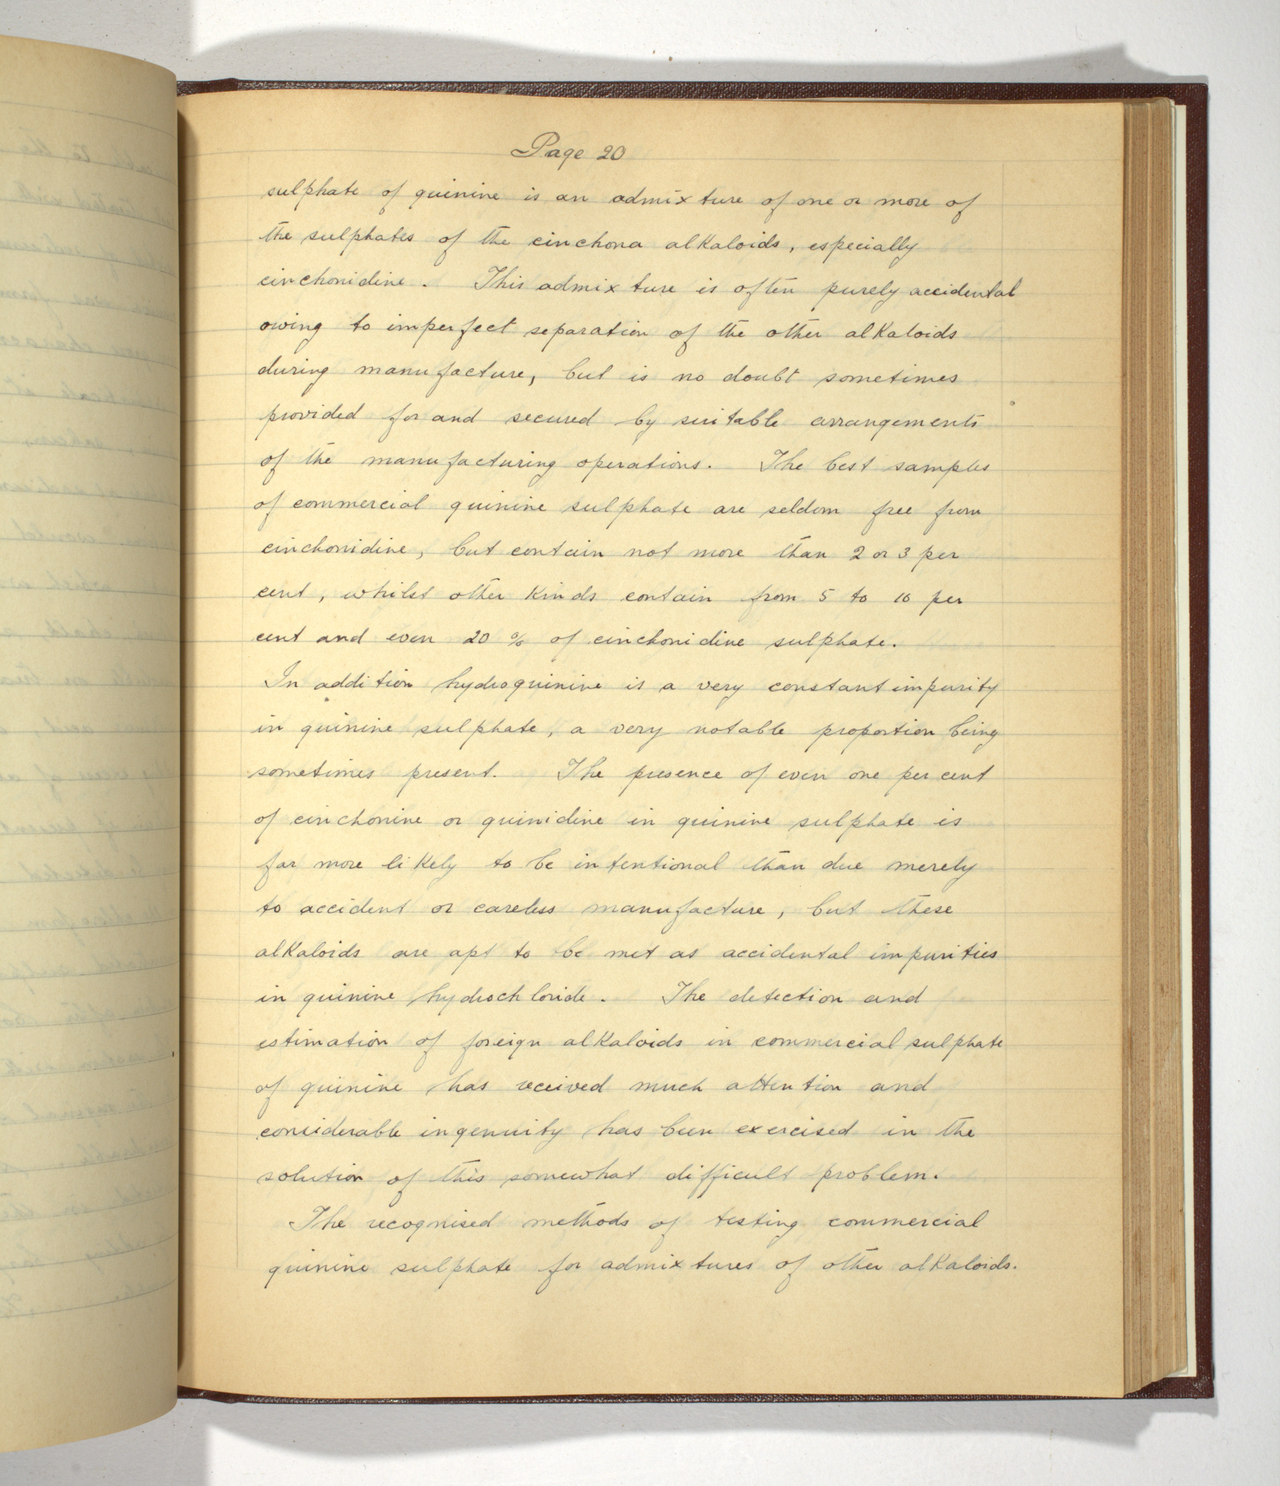 Page 20
sulphate of quinine is an admixture of one or more of
the sulphates of the cinchona alkaloids, especially
cinchonidine. This admixture is often purely accidental
owing to imperfect separation of the other alkaloids
during manufacture, but is no doubt sometimes
provided for and secured by suitable arrangements
of the manufacturing operations. The best samples
of commercial quinine sulphate are seldom free from
cinchonidine, but contain not more than 2 or 3 per
cent, whilst other kinds contain from 5 to 10 per
cent and even 20 % of cinchonidine sulphate.
In addition hydroquinine is a very constant impurity
in quinine sulphate, a very notable proportion being
sometimes present. The presence of even one per cent
of cinchonine or quinidine in quinine sulphate is
far more likely to be intentional than due merely
to accident or careless manufacture, but these
alkaloids are apt to be met as accidental impurities
in quinine hydrochloride. The detection and
estimation of foreign alkaloids in commercial sulphate
of quinine has received much attention and
considerable ingenuity has been exercised in the
solution of this somewhat difficult problem.
The recognised methods of testing commercial
quinine sulphate for admixtures of other alkaloids.